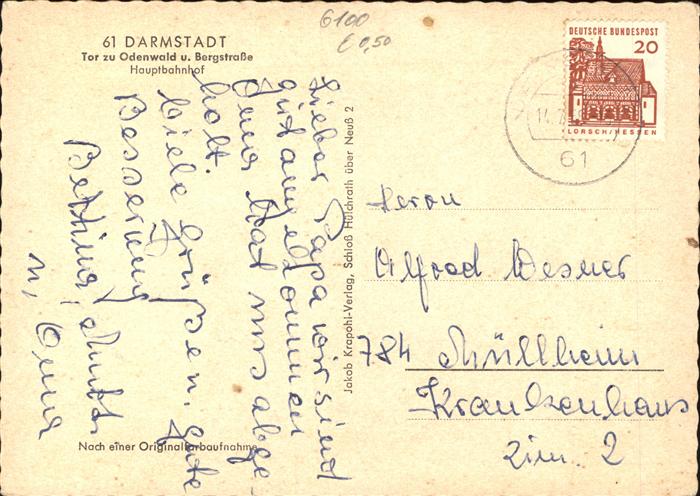 6100
€ 0,50
61 DARMSTADT
Tor zu Odenwald u. Bergstraße
Hauptbahnhof
DEUTSCHE BUNDESPOST
20
LORSCH/HESSEN
14.
61
Lieber Papa wir sind
gut angekommen
Oma hat uns abge-
holt.
Viele Grüße n. gute
Besserung
Bettina, Mutti
u, Oma
Jakob Krapohl-Verlag, Schloß Hülchrath über Neuß 2
Herrn
Alfred Wesner
784 Müllheim
Krankenhaus
Zim. 2
Nach einer Originalfarbaufnahme